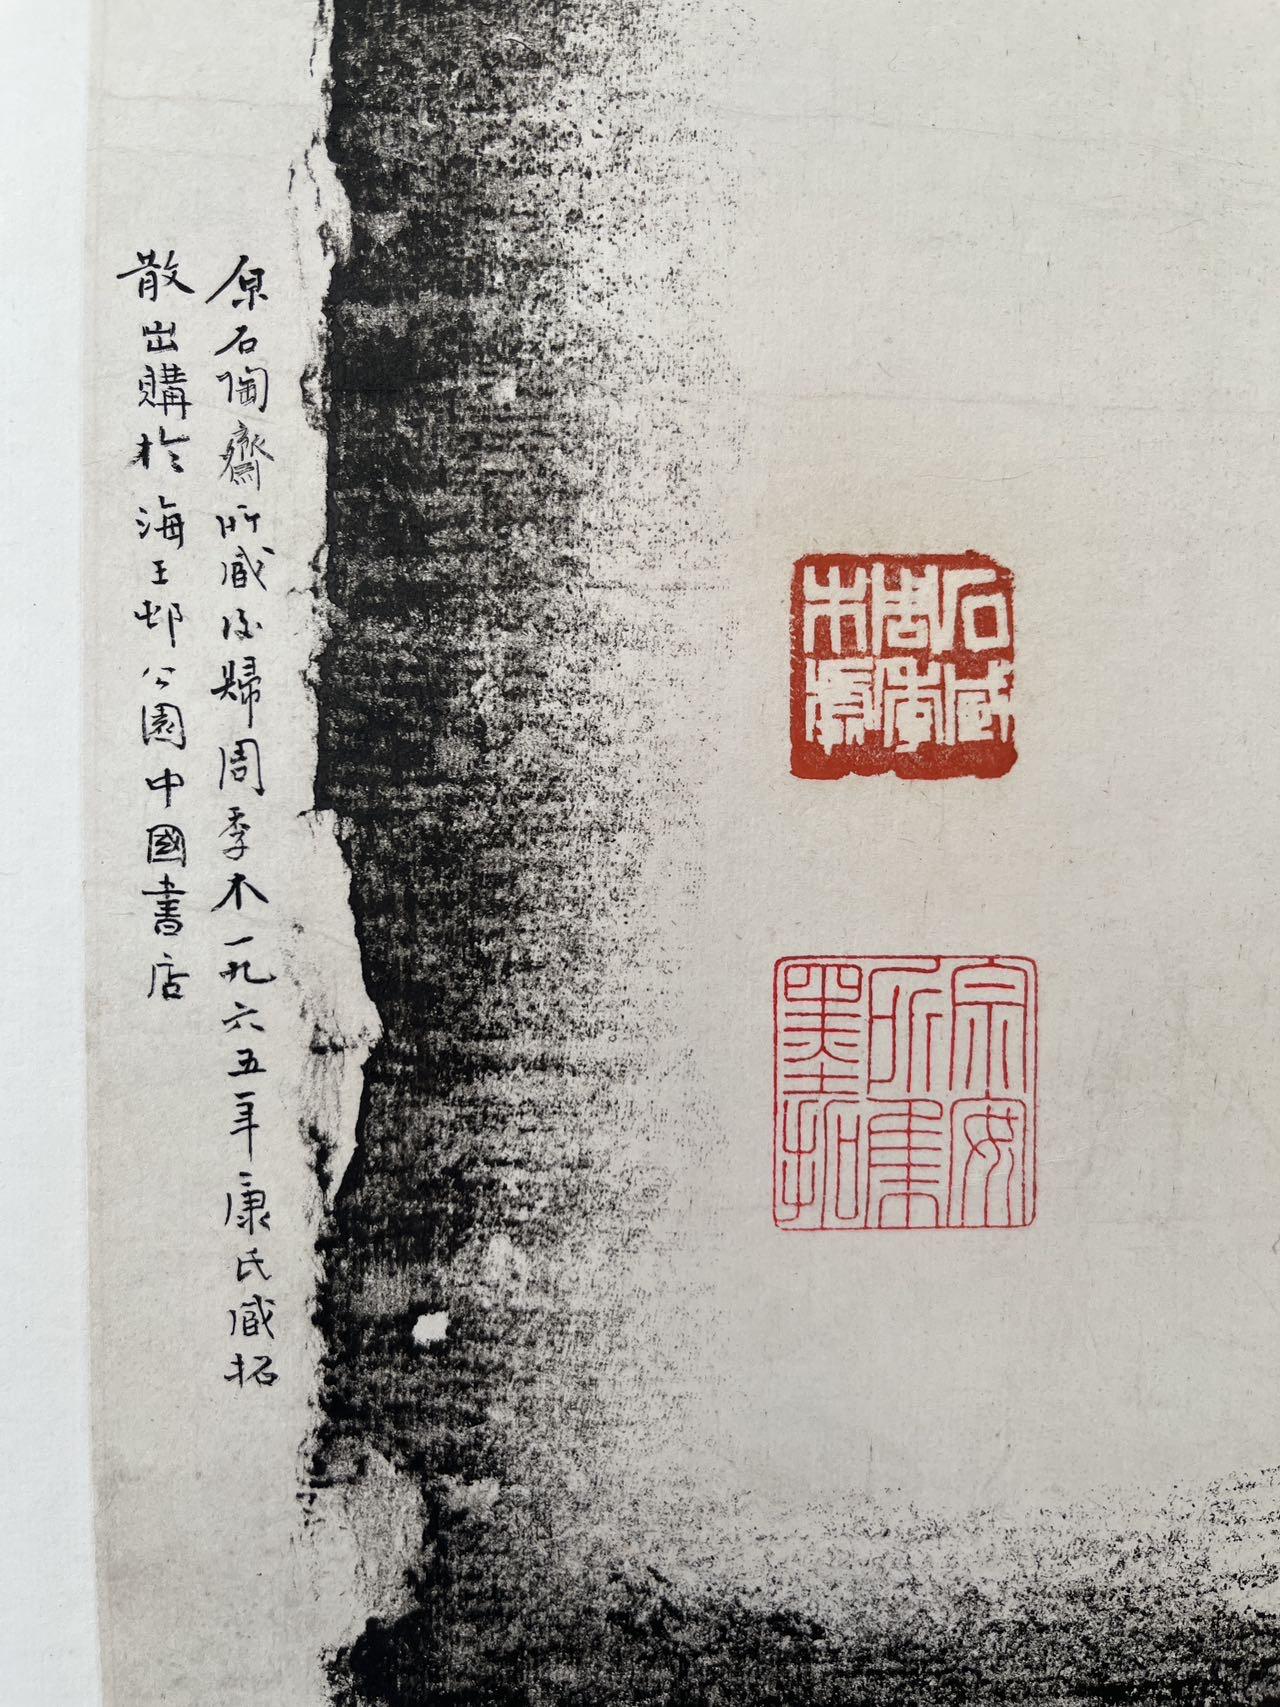 宗安
所集
墨拓
原石陶齋所藏後歸周季木一九六五年康氏藏拓
散出購於海王邨公園中國書店